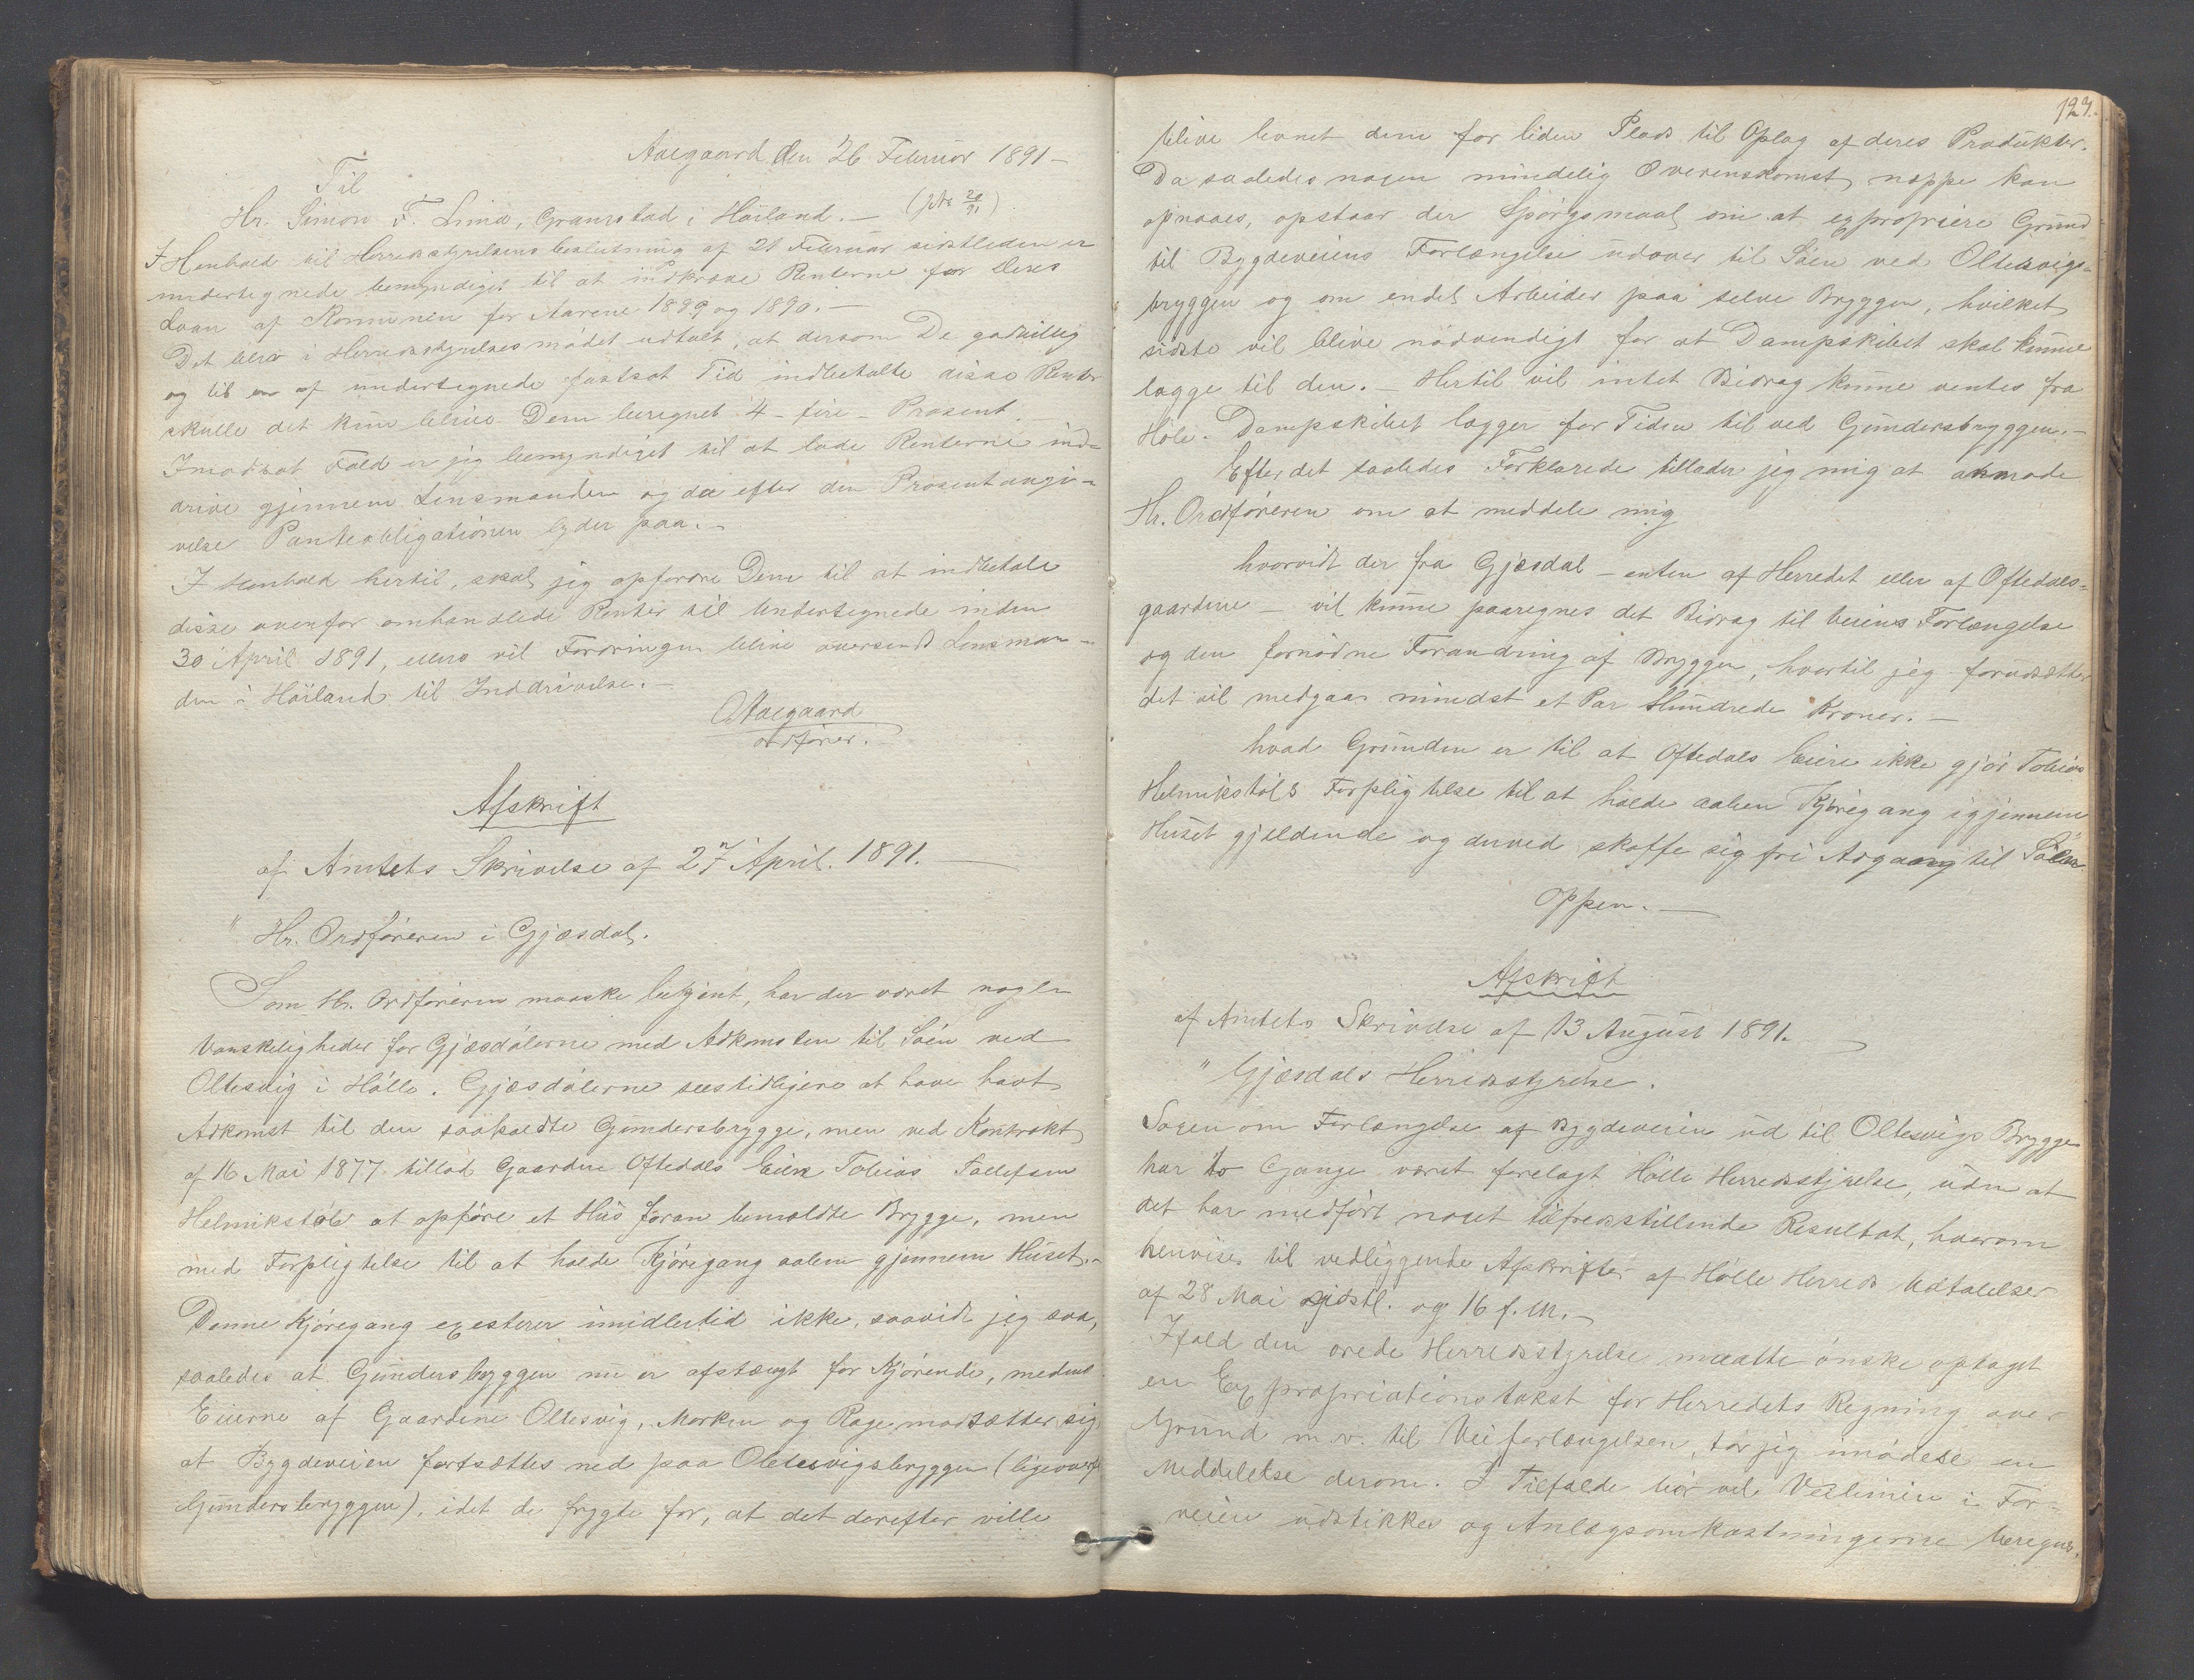 Aalgaard den 26 Februar 1891 —
Til
Hr. Simon F. Lima, Gramstad i Höiland. — (JNr 20/91)
I Henhold til Herredsstyrelsens beslutning af 21 Februar sidstleden er
undertegnede bemyndiget til at indkræve Renterne for Deres
Laan af Kommunen for Aarene 1889 og 1890. —
Det blev i Herredsstyrelsesmödet udtalt, at dersom De godvillig
og til en af undertegnede fastsat Tid indbetalte disse Renter
skulle det kun blive Dem beregnet 4 - fire - Prosent.
Imodsat Fald er jeg bemyndiget til at lade Renterne ind-
drive gjennem Lensmanden og da efter den Prosentangi-
velse Panteobligationen lyder paa. —
I Henhold hertil, skal jeg opfordre Dem til at indbetale
disse ovenfor omhandlede Renter til Undertegnede inden
30 April 1891, ellers vil Fordringen blive oversendt Lensman-
den i Höiland til Inddrivelse. —
Aalgaard
ordförer.
Afskrift
af Amtets Skrivelse af 27 April. 1891. —
" Hr. Ordföreren i Gjæsdal.
Som Hr. Ordföreren maaske bekjent, har der været nogle
Vanskeligheder for Gjæsdölerne med Adkomsten til Söen ved
Oltesvig i Hölle. Gjæsdölerne sees tidligere at have havt
Adkomst til den saakaldte Gundersbrygge, men ved Kontrakt
af 16 Mai 1877 tillod Gaarden Oftedals Eiere Tobias Tollefsen
Helmikstöls at opföre et Hus foran bemeldte Brygge, men
med Forpligtelse til at holde Kjöregang aaben gjennem Huset. —
Denne Kjöregang egesterer imidlertid ikke, saavidt jeg saa,
saaledes at Gundersbryggen nu er afstængt for Kjörende, medens
Eierne af Gaardene Oltesvig, Morken og Rage modsætter sig
at Bygdeveien fortsættes ned paa Oltesvigsbryggen (ligeoverf.
Gundersbryggen), idet de frygte for, at det derefter ville
123.
blive levnet dem for liden Plads til Oplag af deres Produkter.
Da saaledes nogen mindelig Overenskomst neppe kan
opnaaes, opstaar der Spörgsmaal om at egpropriere Grund
til Bygdeveiens Forlængelse udover til Söen ved Oltesvigs-
bryggen og om endel Arbeider paa selve Bryggen, hvilket
sidste vil blive nödvendigt for at Dampskibet skal kunne
lægge til den. — Hertil vil intet Bidrag kunne ventes fra
Höle. Dampskibet lægger for Tiden til ved Gundersbryggen. —
Efter det saaledes Forklarede tillader jeg mig at anmode
Hr. Ordföreren om at meddele mig
hvorvidt der fra Gjæsdal — enten af Herredet eller af Oftedals-
gaardene — vil kunne paaregnes det Bidrag til Veiens Forlængelse
og den fornödne Forandring af Bryggen, hvortil jeg forudsætter
det vil medgaa mindst et Par Hundrede Kroner. —
hvad Grunden er til at Oftedals Eiere ikke gjör Tobias
Helmikstöls Forpligtelse til at holde aaben Kjöregang igjennem
Huset gjældende og derved skaffe sig fri Adgang til Söen
oppen. —
Afskrift
af Amtets Skrivelse af 13 August 1891.
" Gjæsdals Herredsstyrelse.
Sagen om Forlængelse af Bygdeveien ud til Oltesvigs Brygge
har to Gange været forelagt Hölle Herredsstyrelse, uden at
det har medfört noget tilfredsstillende Resultat, hvorom
henvises til vedliggende Afskrifter af Hölle Herreds Udtalelser
af 28 Mai sidstl. og 16 f. M. —
Ifald den ærede Herredsstyrelse maatte önske optaget
en Egpropriationstakst for Herredets Regning over
Grund m.v. til Veiforlængelsen, tör jeg imödese en
Meddelelse derom. I Tilfælde bör vel Veilinien i For-
veien udstikkes og Anlægsomkostningerne beregnes.